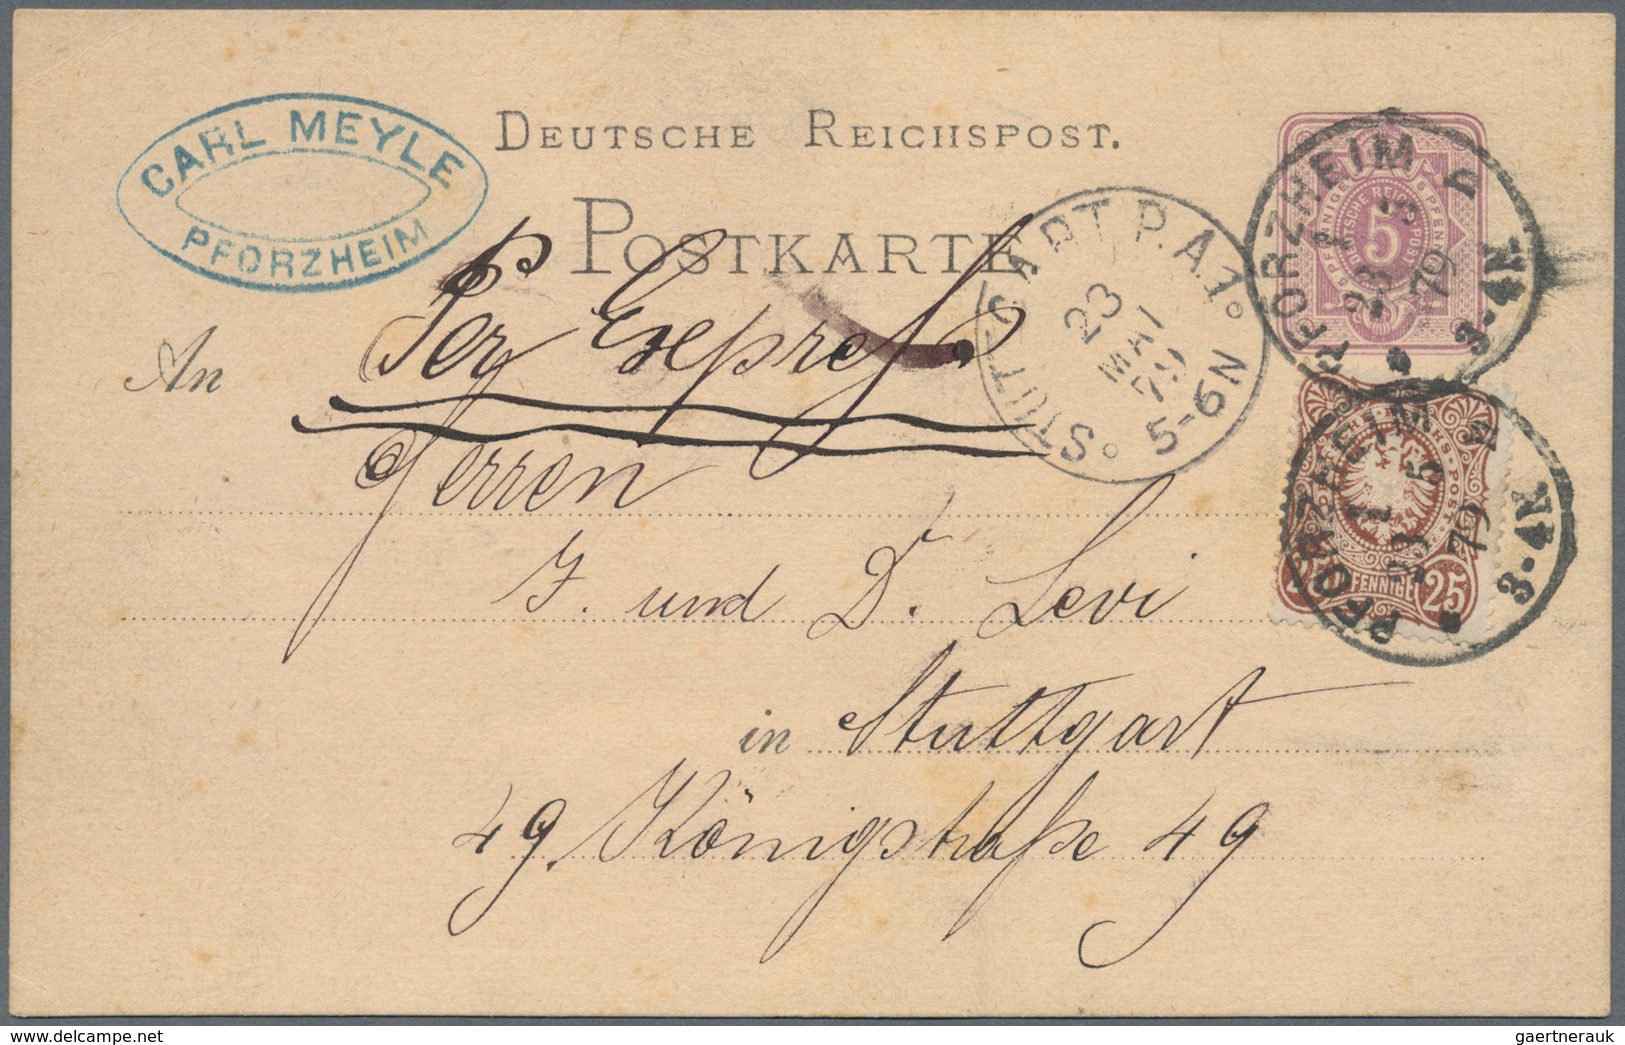 CARL MEYLE
PFORZHEIM
DEUTSCHE REICHSPOST.
POSTKARTE.
Per Expreſs
An
Herren
J. und D. Levi
in Stuttgart
49. Königstraße 49
STUTTGART P.A.1.
23
MAI
79
5-6N
5
PFORZHEIM
23 5
79
3-4N
25 PFENNIGE 25
PFORZHEIM
23 5
79
3-4N
gaertnerauk